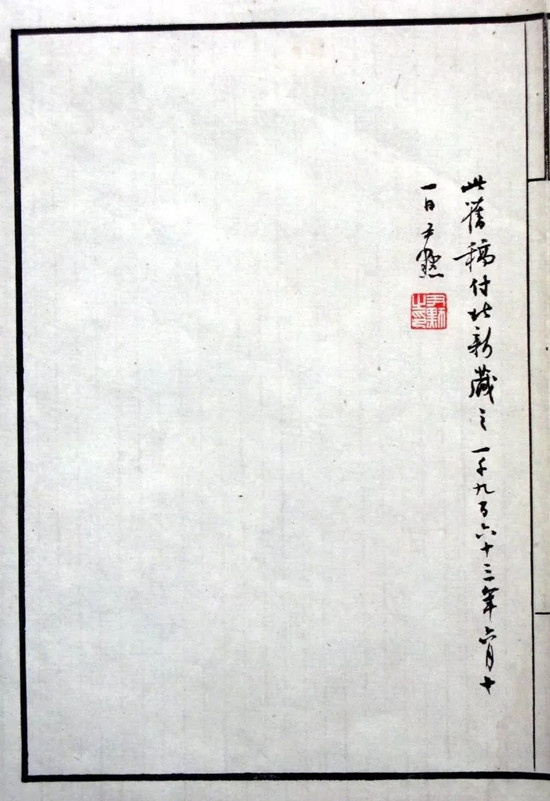 此舊稿付北新藏之一千九百六十三年六月十
一日尹默